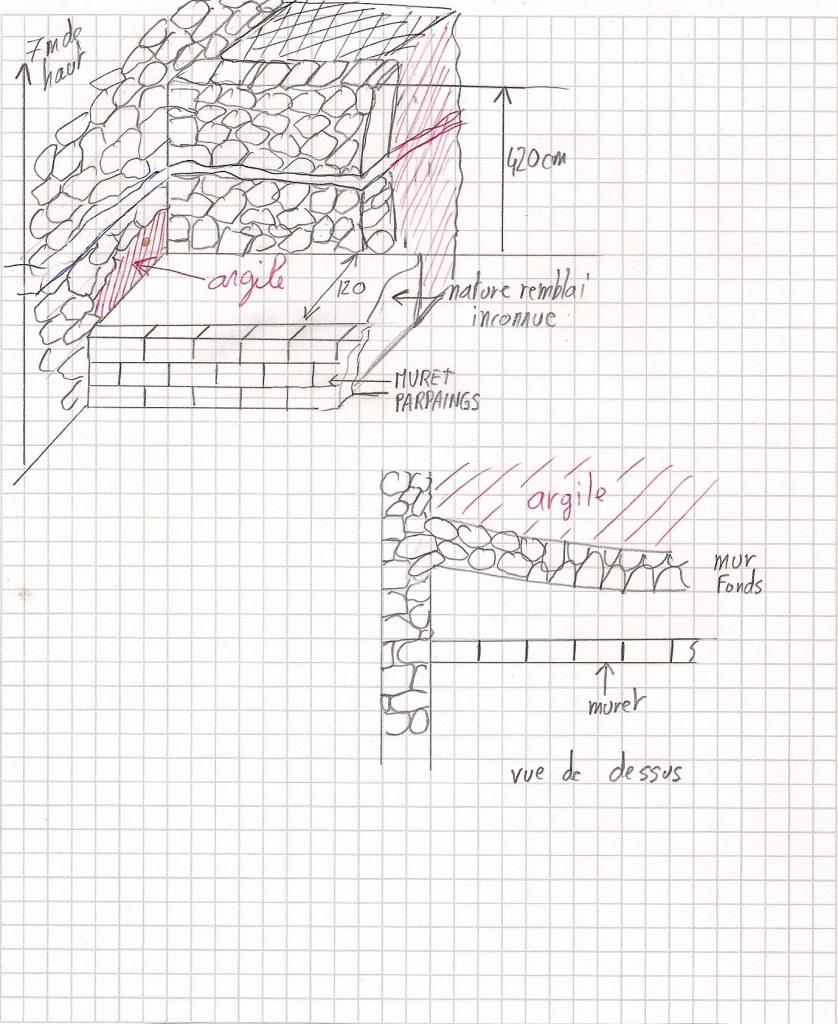 7m de
haut
420cm
argile
120
nature remblai
inconnue
MURET
PARPAINGS
argile
mur
Fonds
muret
vue de dessus